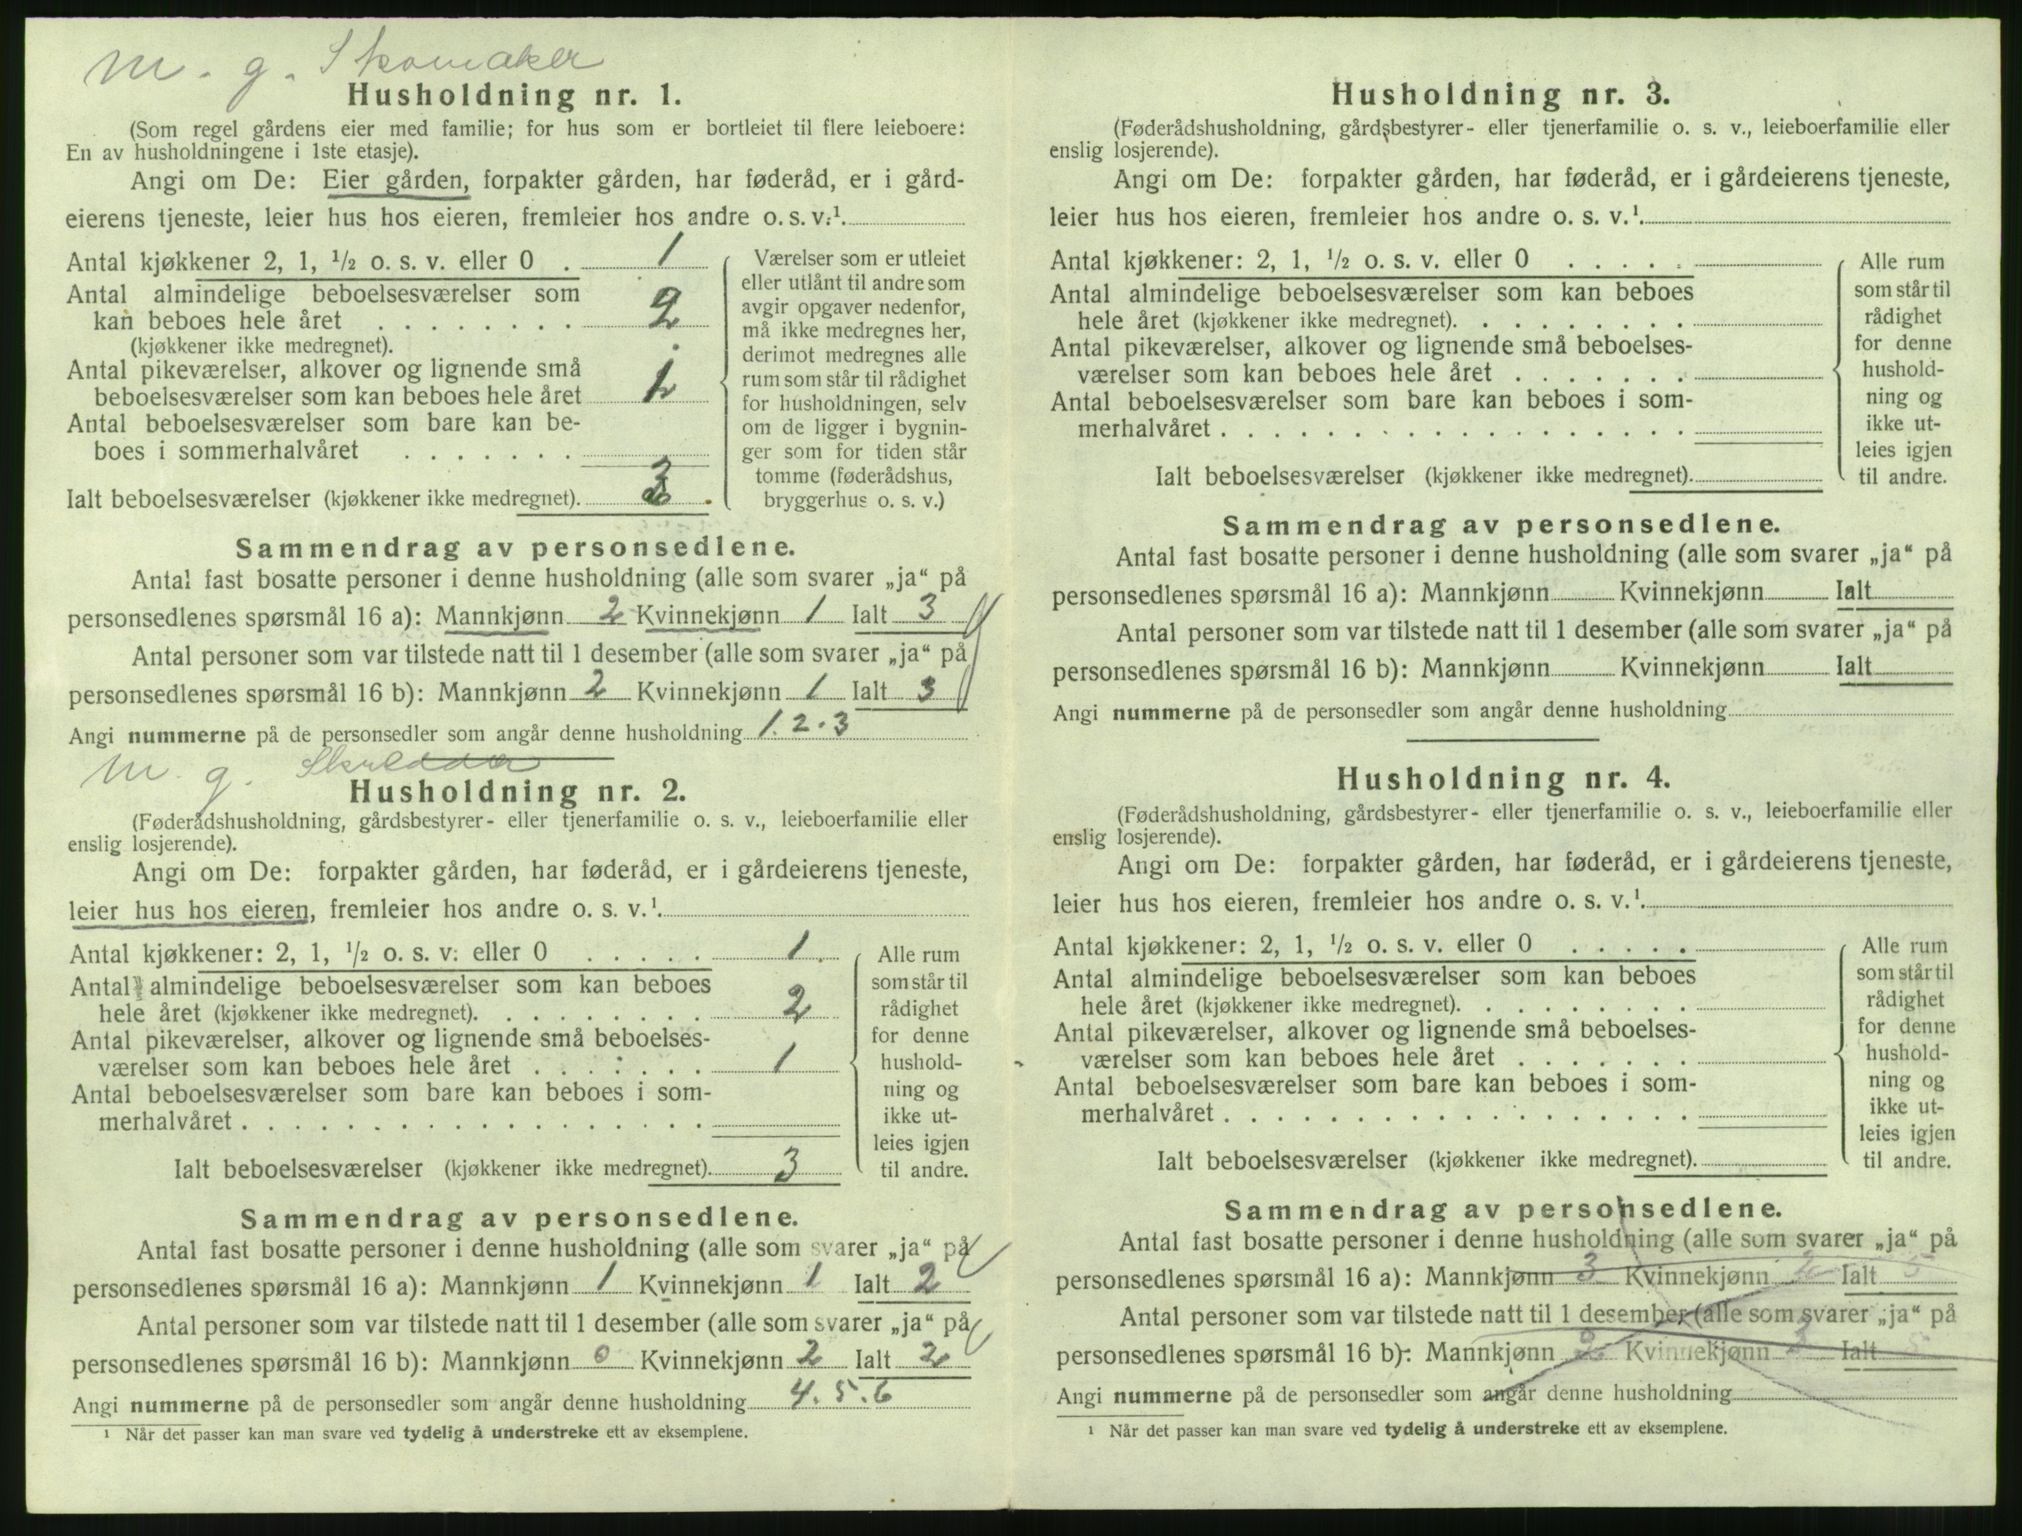 m. g. Skomaker
Husholdning nr. 1.
(Som regel gårdens eier med familie; for hus som er bortleiet til flere leieboere:
En av husholdningene i 1ste etasje).
Angi om De: Eier gården, forpakter gården, har føderåd, er i gård-
eierens tjeneste, leier hus hos eieren, fremleier hos andre o. s. v.¹
Antal kjøkkener 2, 1, ½ o. s. v. eller 0 . 1
Antal almindelige beboelsesværelser som
kan beboes hele året . . . . . . . . 2
(kjøkkener ikke medregnet).
Antal pikeværelser, alkover og lignende små
beboelsesværelser som kan beboes hele året 1
Antal beboelsesværelser som bare kan be-
boes i sommerhalvåret . . . . . . .
Ialt beboelsesværelser (kjøkkener ikke medregnet). 3
Værelser som er utleiet
eller utlånt til andre som
avgir opgaver nedenfor,
må ikke medregnes her,
derimot medregnes alle
rum som står til rådighet
for husholdningen, selv
om de ligger i bygnin-
ger som for tiden står
tomme (føderådshus,
bryggerhus o. s. v.)
Sammendrag av personsedlene.
Antal fast bosatte personer i denne husholdning (alle som svarer „ja“ på
personsedlenes spørsmål 16 a): Mannkjønn 2 Kvinnekjønn 1 Ialt 3
Antal personer som var tilstede natt til 1 desember (alle som svarer „ja“ på
personsedlenes spørsmål 16 b): Mannkjønn 2 Kvinnekjønn 1 Ialt 3
Angi nummerne på de personsedler som angår denne husholdning 1. 2. 3
m. g. Skredder
Husholdning nr. 2.
(Føderådshusholdning, gårdsbestyrer- eller tjenerfamilie o. s. v., leieboerfamilie eller
enslig losjerende).
Angi om De: forpakter gården, har føderåd, er i gårdeierens tjeneste,
leier hus hos eieren, fremleier hos andre o. s. v.¹.
Antal kjøkkener: 2, 1, ½ o. s. v. eller 0 . . . . . 1
Antal almindelige beboelsesværelser som kan beboes
hele året (kjøkkener ikke medregnet). . . . . . . . . 2
Antal pikeværelser, alkover og lignende små beboelses-
værelser som kan beboes hele året . . . . . . . 1
Antal beboelsesværelser som bare kan beboes i som-
merhalvåret . . . . . . . . . . . . . . . . . .
Ialt beboelsesværelser (kjøkkener ikke medregnet). 3
Alle rum
som står til
rådighet
for denne
hushold-
ning og
ikke ut-
leies igjen
til andre.
Sammendrag av personsedlene.
Antal fast bosatte personer i denne husholdning (alle som svarer „ja“ på
personsedlenes spørsmål 16 a): Mannkjønn 1 Kvinnekjønn 1 Ialt 2
Antal personer som var tilstede natt til 1 desember (alle som svarer „ja“ på
personsedlenes spørsmål 16 b): Mannkjønn 0 Kvinnekjønn 2 Ialt 2
Angi nummerne på de personsedler som angår denne husholdning 4. 5. 6
¹ Når det passer kan man svare ved tydelig å understreke ett av eksemplene.
Husholdning nr. 3.
(Føderådshusholdning, gårdsbestyrer- eller tjenerfamilie o. s. v., leieboerfamilie eller
enslig losjerende).
Angi om De: forpakter gården, har føderåd, er i gårdeierens tjeneste,
leier hus hos eieren, fremleier hos andre o. s. v.¹.
Antal kjøkkener: 2, 1, ½ o. s. v. eller 0 . . . . .
Antal almindelige beboelsesværelser som kan beboes
hele året (kjøkkener ikke medregnet). . . . . . . . .
Antal pikeværelser, alkover og lignende små beboelses-
værelser som kan beboes hele året . . . . . . .
Antal beboelsesværelser som bare kan beboes i som-
merhalvåret . . . . . . . . . . . . . . . . . .
Ialt beboelsesværelser (kjøkkener ikke medregnet).
Alle rum
som står til
rådighet
for denne
hushold-
ning og
ikke ut-
leies igjen
til andre.
Sammendrag av personsedlene.
Antal fast bosatte personer i denne husholdning (alle som svarer „ja“ på
personsedlenes spørsmål 16 a): Mannkjønn Kvinnekjønn Ialt
Antal personer som var tilstede natt til 1 desember (alle som svarer „ja“ på
personsedlenes spørsmål 16 b): Mannkjønn Kvinnekjønn Ialt
Angi nummerne på de personsedler som angår denne husholdning
Husholdning nr. 4.
(Føderådshusholdning, gårdsbestyrer- eller tjenerfamilie o. s. v., leieboerfamilie eller
enslig losjerende).
Angi om De: forpakter gården, har føderåd, er i gårdeierens tjeneste,
leier hus hos eieren, fremleier hos andre o. s. v.¹.
Antal kjøkkener: 2, 1, ½ o. s. v. eller 0 . . . . .
Antal almindelige beboelsesværelser som kan beboes
hele året (kjøkkener ikke medregnet). . . . . . . . .
Antal pikeværelser, alkover og lignende små beboelses-
værelser som kan beboes hele året . . . . . . .
Antal beboelsesværelser som bare kan beboes i som-
merhalvåret . . . . . . . . . . . . . . . . . .
Ialt beboelsesværelser (kjøkkener ikke medregnet).
Alle rum
som står til
rådighet
for denne
hushold-
ning og
ikke ut-
leies igjen
til andre.
Sammendrag av personsedlene.
Antal fast bosatte personer i denne husholdning (alle som svarer „ja“ på
personsedlenes spørsmål 16 a): Mannkjønn 3 Kvinnekjønn 2 Ialt 5
Antal personer som var tilstede natt til 1 desember (alle som svarer „ja“ på
personsedlenes spørsmål 16 b): Mannkjønn 2 Kvinnekjønn 3 Ialt 5
Angi nummerne på de personsedler som angår denne husholdning
¹ Når det passer kan man svare ved tydelig å understreke ett av eksemplene.